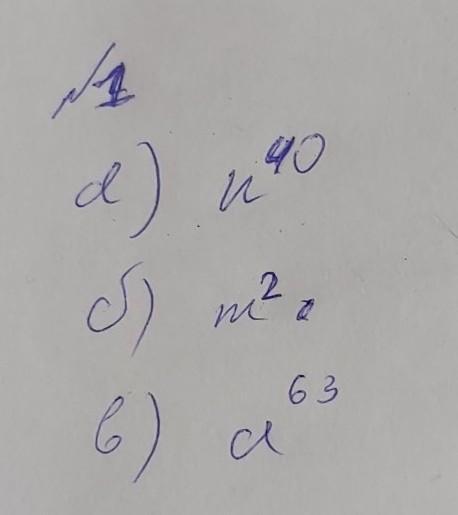 №1
а) n⁴⁰
б) m².
в) a⁶³